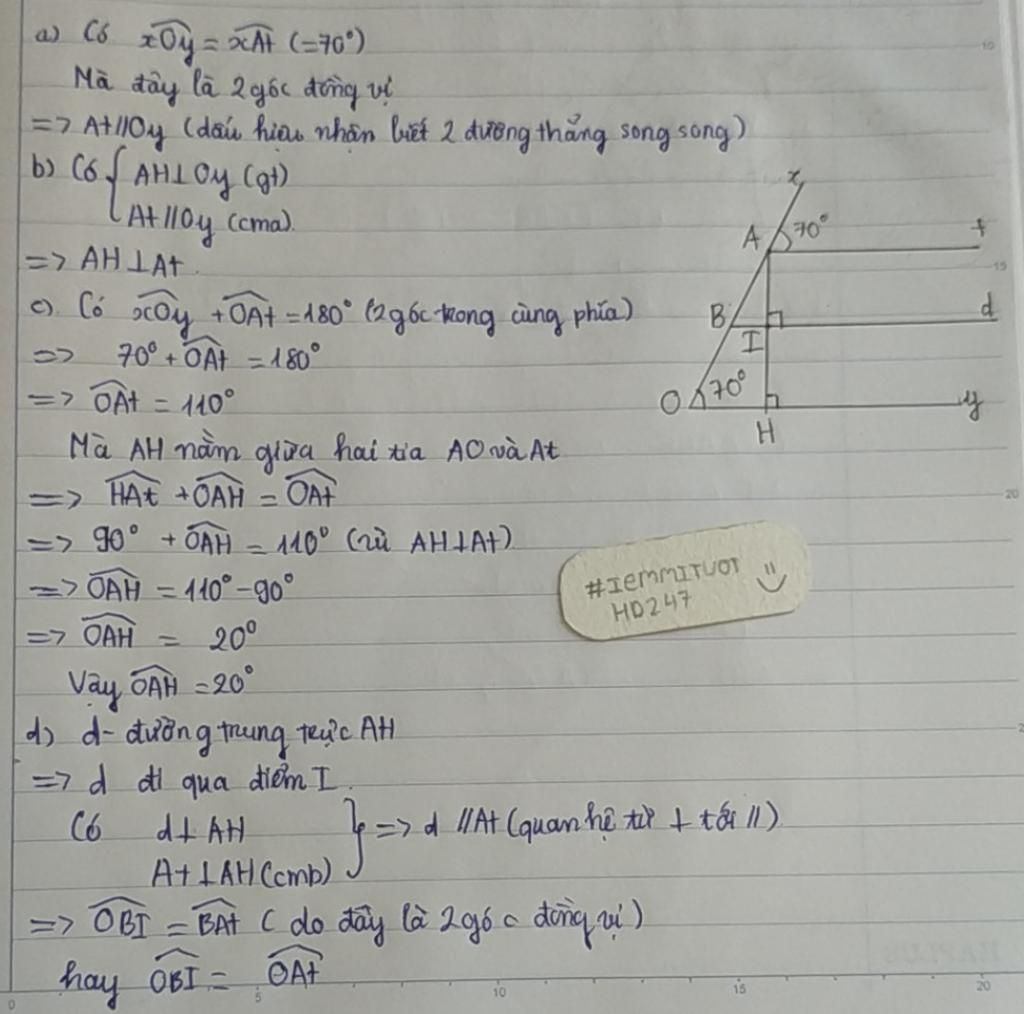 a) Có xOy = xAt (=70°)
Mà đây là 2 góc đồng vị
=> At//Oy (dấu hiệu nhận biết 2 đường thẳng song song)
b) Có { AH⊥Oy (gt)
At//Oy (cma)
=> AH⊥At.
c). Có xOy + OAt = 180° (2 góc trong cùng phía)
=> 70° + OAt = 180°
=> OAt = 110°
Mà AH nằm giữa hai tia AO và At
=> HAt + OAH = OAt
=> 90° + OAH = 110° (vì AH⊥At)
=> OAH = 110° - 90°
=> OAH = 20°
Vậy OAH = 20°
d) d - đường trung trực AH
=> d đi qua điểm I.
Có d⊥AH } => d //At (quan hệ từ ⊥ tới //)
At⊥AH (cmb)
=> OBI = BAt (do đây là 2 góc đồng vị)
hay OBI = OAt
x
A 70° t
B d
I
O 70° y
H
#IEMMITUOT
HD247
10
15
20
0 5 10 15 20